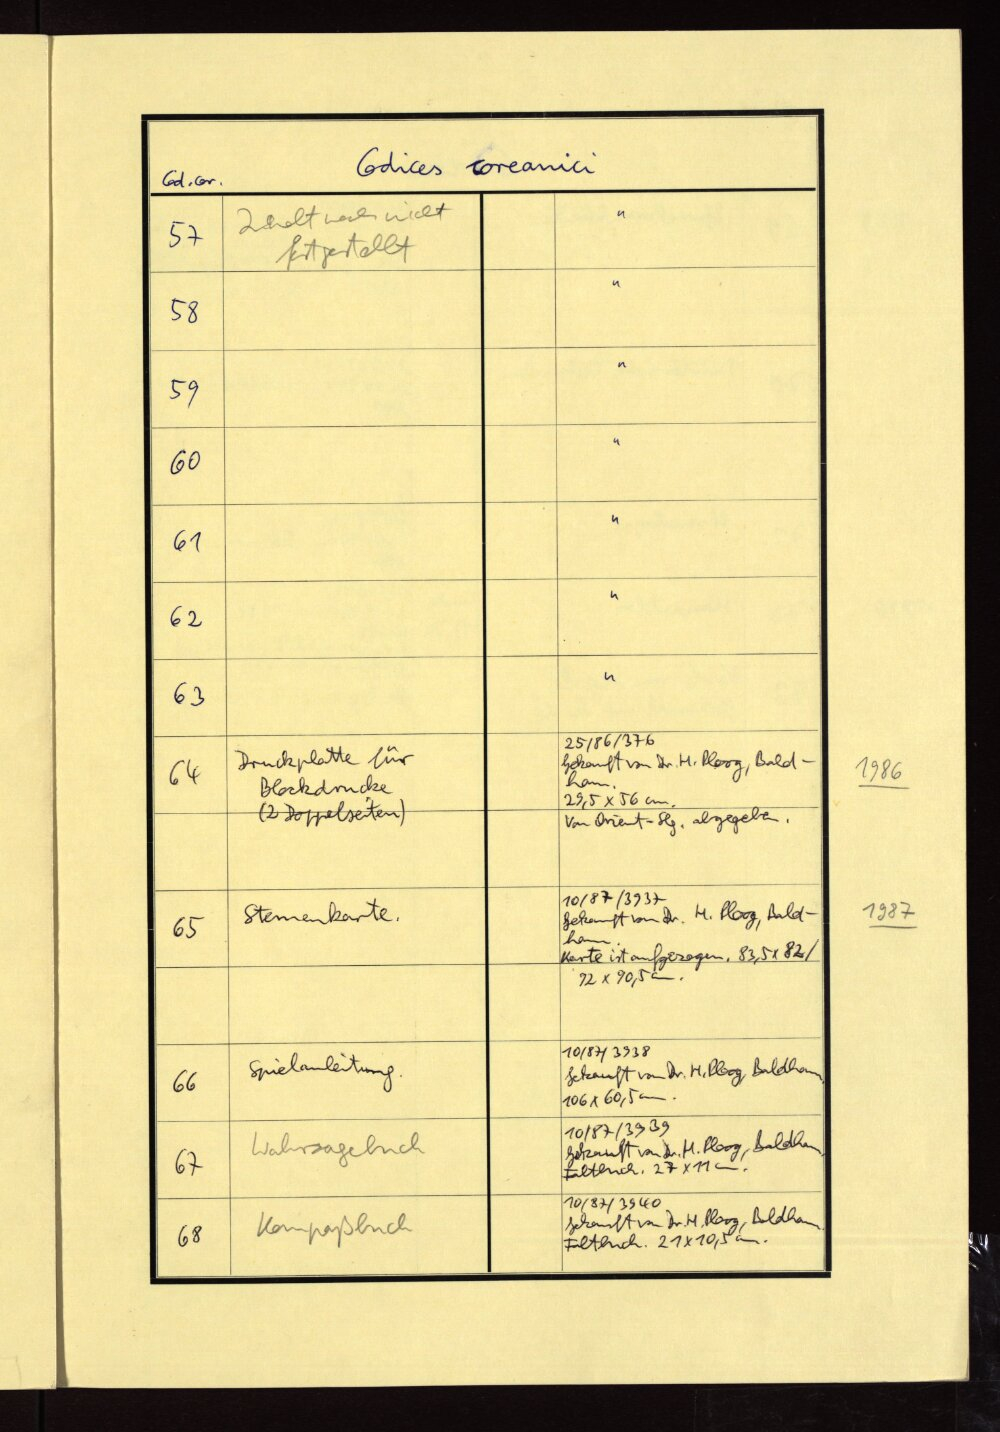 Codices coreanici
Cod.cor.
57 Inhalt noch nicht "
festgestellt
58 "
59 "
60 "
61 "
62 "
63 "
64 Druckplatte für
Blockdrucke
(2 Doppelseiten)
25/86/376
Gekauft von Dr. H. Ploog, Bald-
ham.
29,5 x 56 cm.
Von Orient-Slg. abgegeben.
1986
65 Sternenkarte.
10/87/3937
Gekauft von Dr. H. Ploog, Bald-
ham.
Karte ist aufgezogen. 83,5 x 82/
92 x 90,5 cm.
1987
66 Spielanleitung.
10/87/3938
Gekauft von Dr. H. Ploog, Baldham.
106 x 60,5 cm.
67 Wahrsagebuch
10/87/3939
Gekauft von Dr. H. Ploog, Baldham.
Faltbuch. 27 x 11 cm.
68 Kompaßbuch
10/87/3940
Gekauft von Dr. H. Ploog, Baldham.
Faltbuch. 21 x 10,5 cm.